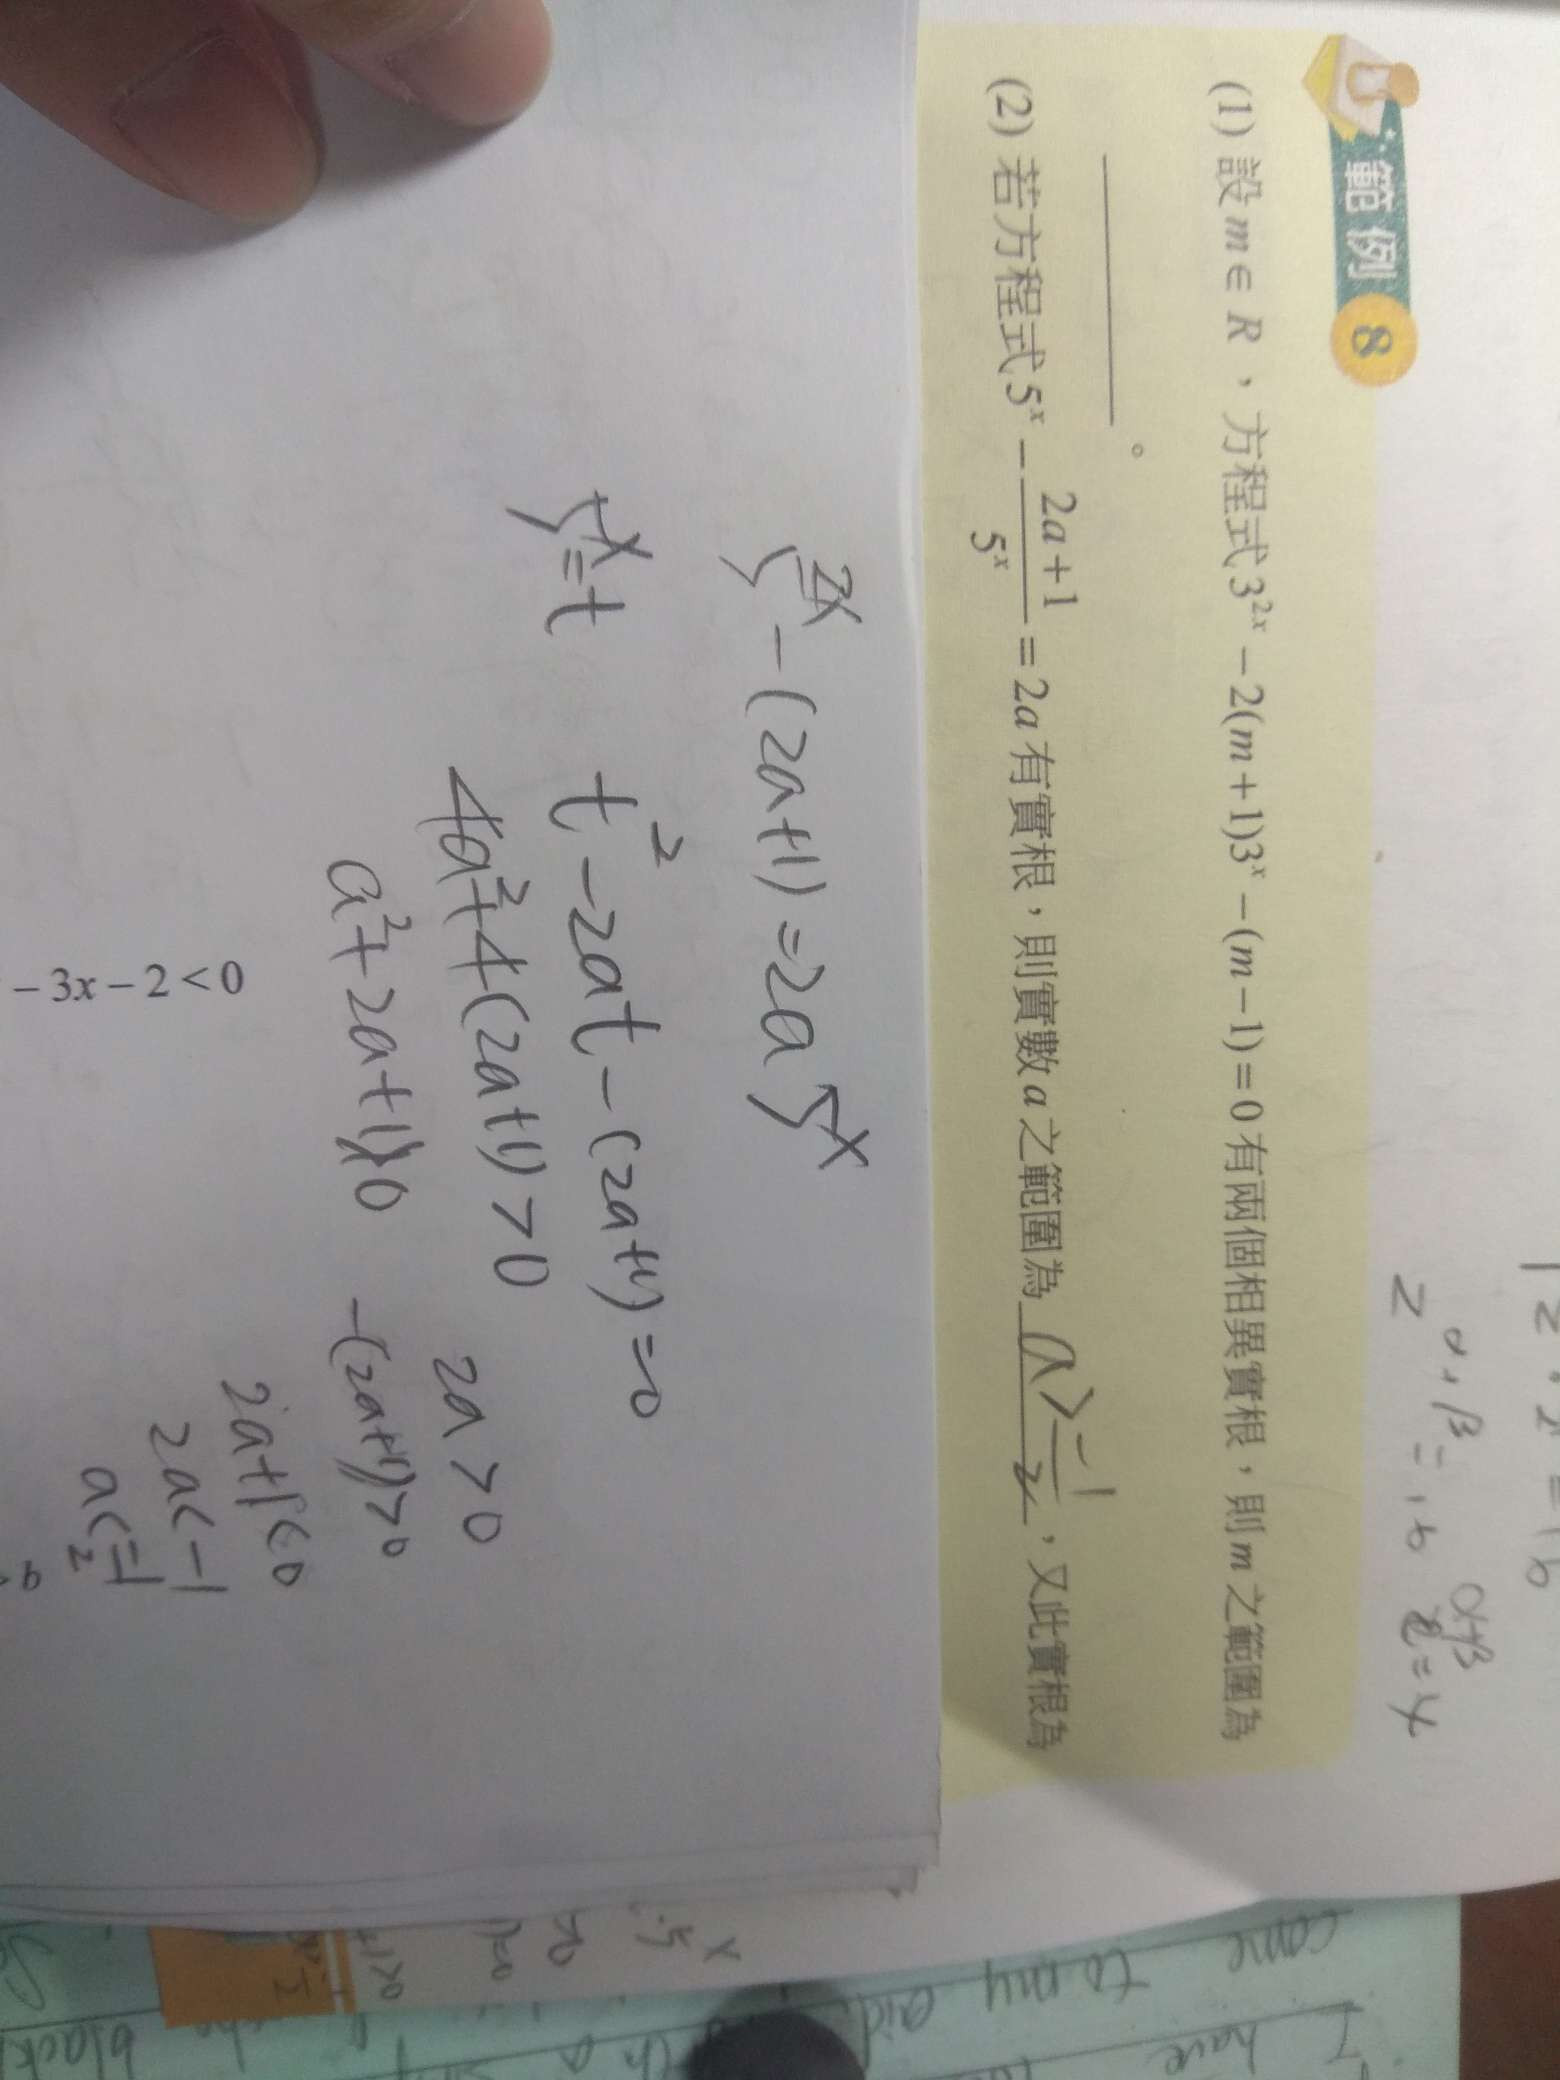 範例 8
(1) 設 m ∈ R，方程式 3^{2x} − 2(m+1)3^x − (m−1) = 0 有兩個相異實根，則 m 之範圍為
________。
(2) 若方程式 5^x − \frac{2a+1}{5^x} = 2a 有實根，則實數 a 之範圍為 a > \frac{-1}{2}，又此實根為
2^{α+β} = 16
α+β = 4
5^{2x} − (2a+1) = 2a 5^x
5^x = t
t^2 − 2at − (2a+1) = 0
4a^2 + 4(2a+1) > 0
a^2 + 2a + 1 > 0
2a > 0
−(2a+1) > 0
2a+1 < 0
2a < −1
a < \frac{-1}{2}
− 3x − 2 < 0
come to my aid
have
black